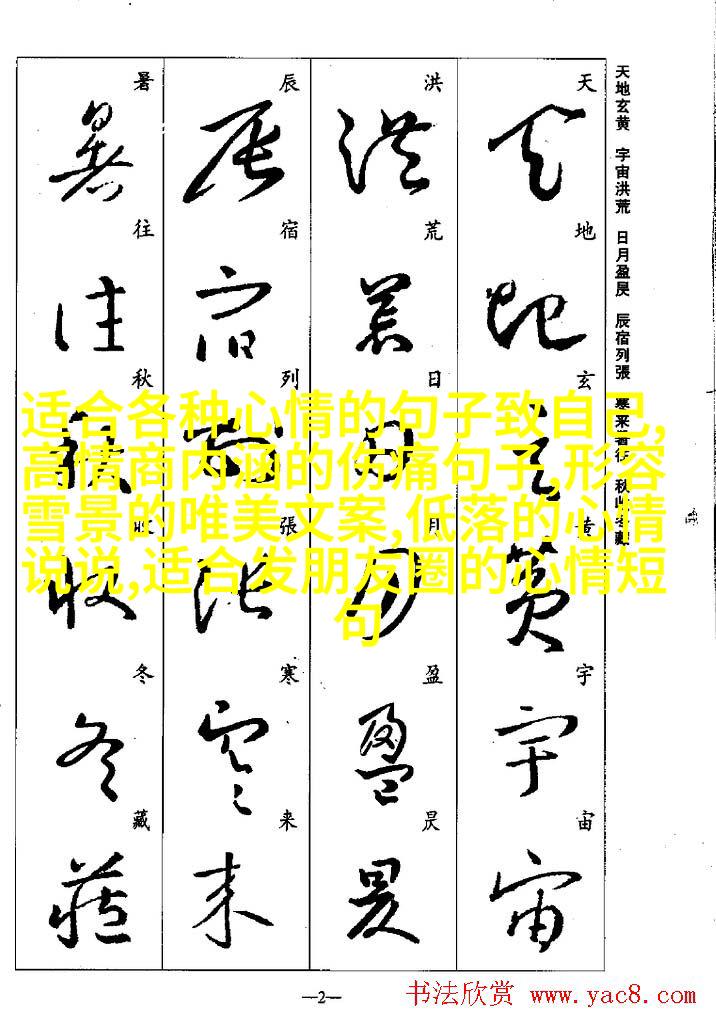 天地玄黄 宇宙洪荒 日月盈昃 辰宿列張 寒来暑往 秋收冬藏
天地玄黄宇宙
洪荒日月盈昃
辰宿列張寒来
暑往秋收冬藏
适合各种心情的句子致自己,
高情商内涵的伤痛句子,形容
雪景的唯美文案,低落的心情
说说,适合发朋友圈的心情短
句
—2—
书法欣赏 www.yac8.com